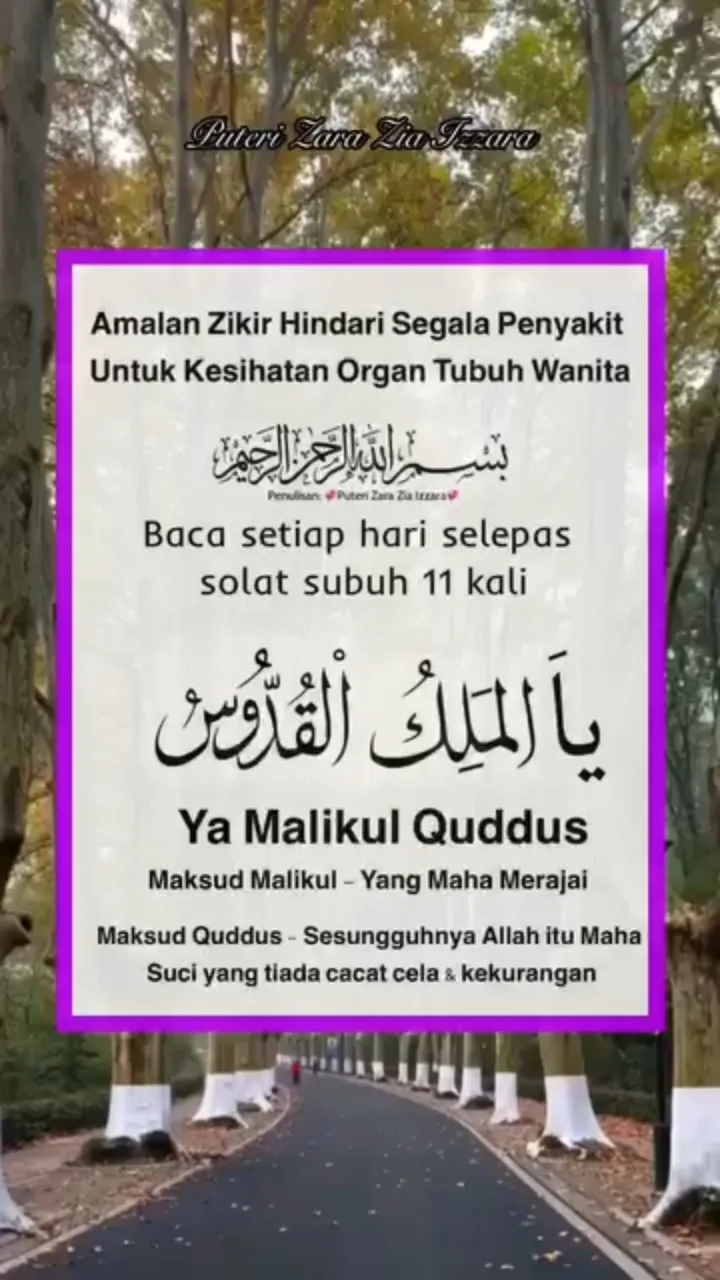 Puteri Zara Zia Izzara
Amalan Zikir Hindari Segala Penyakit
Untuk Kesihatan Organ Tubuh Wanita
بسم الله الرحمن الرحيم
Penulisan: 💕Puteri Zara Zia Izzara💕
Baca setiap hari selepas
solat subuh 11 kali
ياَ المَلِكُ الْقُدُّوسُ
Ya Malikul Quddus
Maksud Malikul - Yang Maha Merajai
Maksud Quddus - Sesungguhnya Allah itu Maha
Suci yang tiada cacat cela & kekurangan